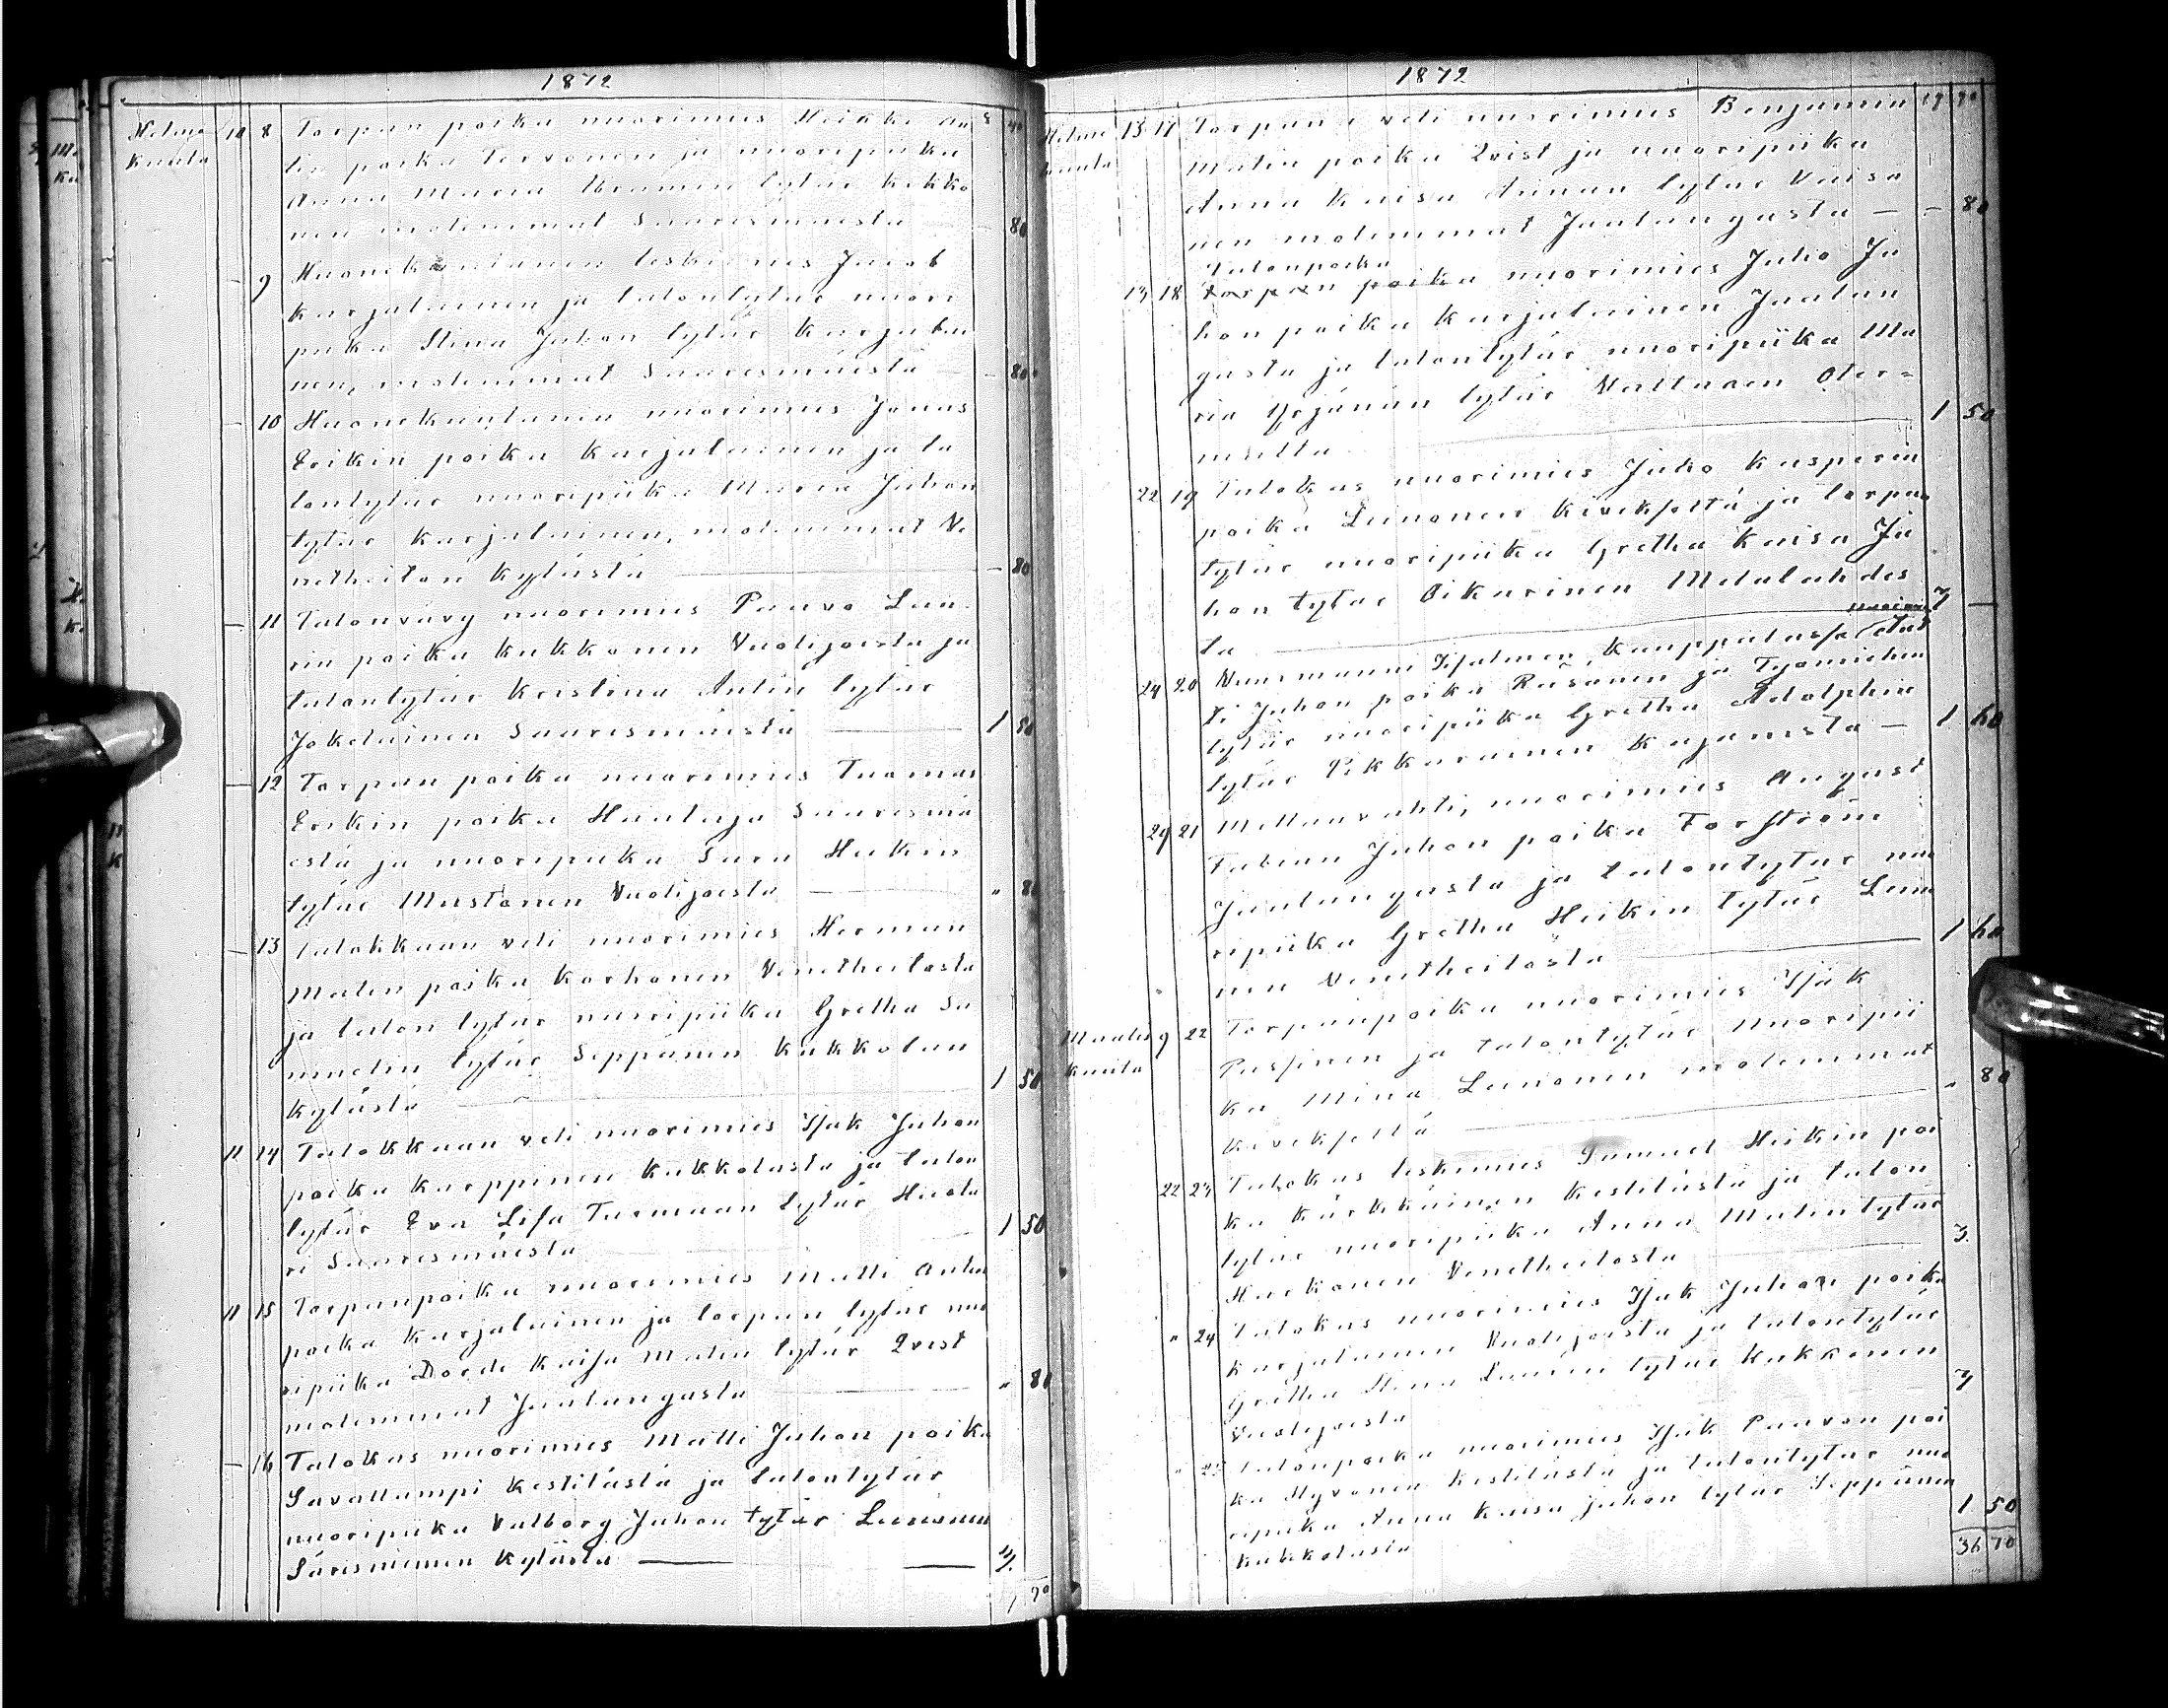 1872
Helmi 10 8 Torpan poika nuorimies Heikki An 8 40
kuuta tin poika Tervonen ja nuoripiika
Anna Maria tytär Kekko
nen molemmat Saaresmäestä — 80
— 9 Huonekuntanen leskimies Jacob
Karjalainen ja talontytär nuori
piika Stina Juhon tytär Karjalai
nen, molemmat Saaresmäestä — 80
— 10 Huonekuntanen nuorimies Jonas
Erikin poika Karjalainen ja ta
lontytär nuoripiika Maria Juhon
tytär Karjalainen, molemmat Ve
netheiton kylästä — 80
— 11 Talonvävy nuorimies Paavo Lau
rin poika Kukkonen Vuolijoesta ja
talontytär Kristina Antin tytär
Jokelainen Saaresmäestä — 1 50
— 12 Torpan poika nuorimies Tuomas
Erikin poika Huutaja Saaresmä
estä ja nuoripiika Sara Heikin
tytär Mustonen Vuolijoesta — " 80
— 13 talokkaan veli nuorimies Herman
Matin poika Korhonen Venetheitosta
ja talon tytär nuoripiika Gretha Sa
muelin tytär Seppänen Kukkolan
kylästä — 1 50
11 14 Talokkaan veli nuorimies Isak Juhon
poika Karppinen Kukkolasta ja talon
tytär Eva Lisa Tuomaan tytär Huota
ri Saaresmäestä 1 50
11 15 Torpanpoika nuorimies Matti Antin
poika Karjalainen ja torpan tytär nuo
ripiika Dorde Kaisa Matin tytär Qvist
molemmat Jaalangasta — " 80
— 16 Talokas nuorimies Matti Juhon poika
Savallampi Kestilästä ja talontytär
nuoripiika Valborg Juhon tytär Leinonen
Säresniemen kylästä — 3
1 90
1872
Helmi 13 17 Torpan veli nuorimies Benjamin 19 90
kuuta Matin poika Qvist ja nuoripiika
Anna Kaisa tytär Vaisa
nen molemmat Jaalangasta — — 80
Talonpoika
13 18 torpan poika nuorimies Juho Ju
hon poika Karjalainen Jaalan
gasta ja talontytär nuoripiika Ma
ria Yrjänän tytär Valtanen Oter=
mältä 1 50
22 19 Talokas nuorimies Juho Kasperin
poika Leinonen Kivekseltä ja torpan
tytär nuoripiika Gretha Kaisa Ju
hon tytär Oikarinen Melalahdes
ta — 3 —
nuorimies
24 20 Iisalmen Kauppalassa
ti Juhon poika Räsänen ja Työmiehen
tytär nuoripiika Gretha Adolphin
tytär Pikkarainen Kajanista — 1 60
29 21 Mettanvahti, nuorimies August
Fabian Juhon poika Forsström
Jaalangasta ja talontytär nuo
ripiika Gretha Heikin tytär Leino
nen Venetheitosta — 1 60
Maalis 9 22 Torpanpoika nuorimies Isak
kuuta Pussinen ja talontytär nuoripii
ka Mina Leinonen molemmat
Kivekseltä — " 80
22 23 Talokas leskimies Samuel Heikin poi
ka Kärkkäinen Kestilästä ja talon
tytär nuoripiika Anna Matin tytär
Huekonen Venetheitosta 3.
" 24 Talokas nuorimies Isak Juhon poika
Karjalainen Vuolijoesta ja talontytär
Gretha Stina tytär Kukkonen
Vuolijoesta 3
" 25 talonpoika nuorimies Isak Paavon poi
ka Hyvönen Kestilästä ja talontytär nuo
ripiika Anna Kaisa juhon tytär Seppänen
Kukkolasta 1 50
36 70